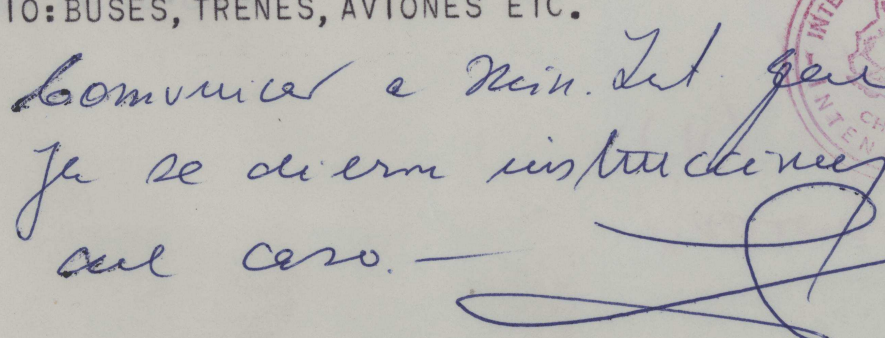 IO: BUSES, TRENES, AVIONES ETC.
Comunicar a Min. Int. que
Ya se dieron instrucciones
del caso. —
INTE
CH
INTEN